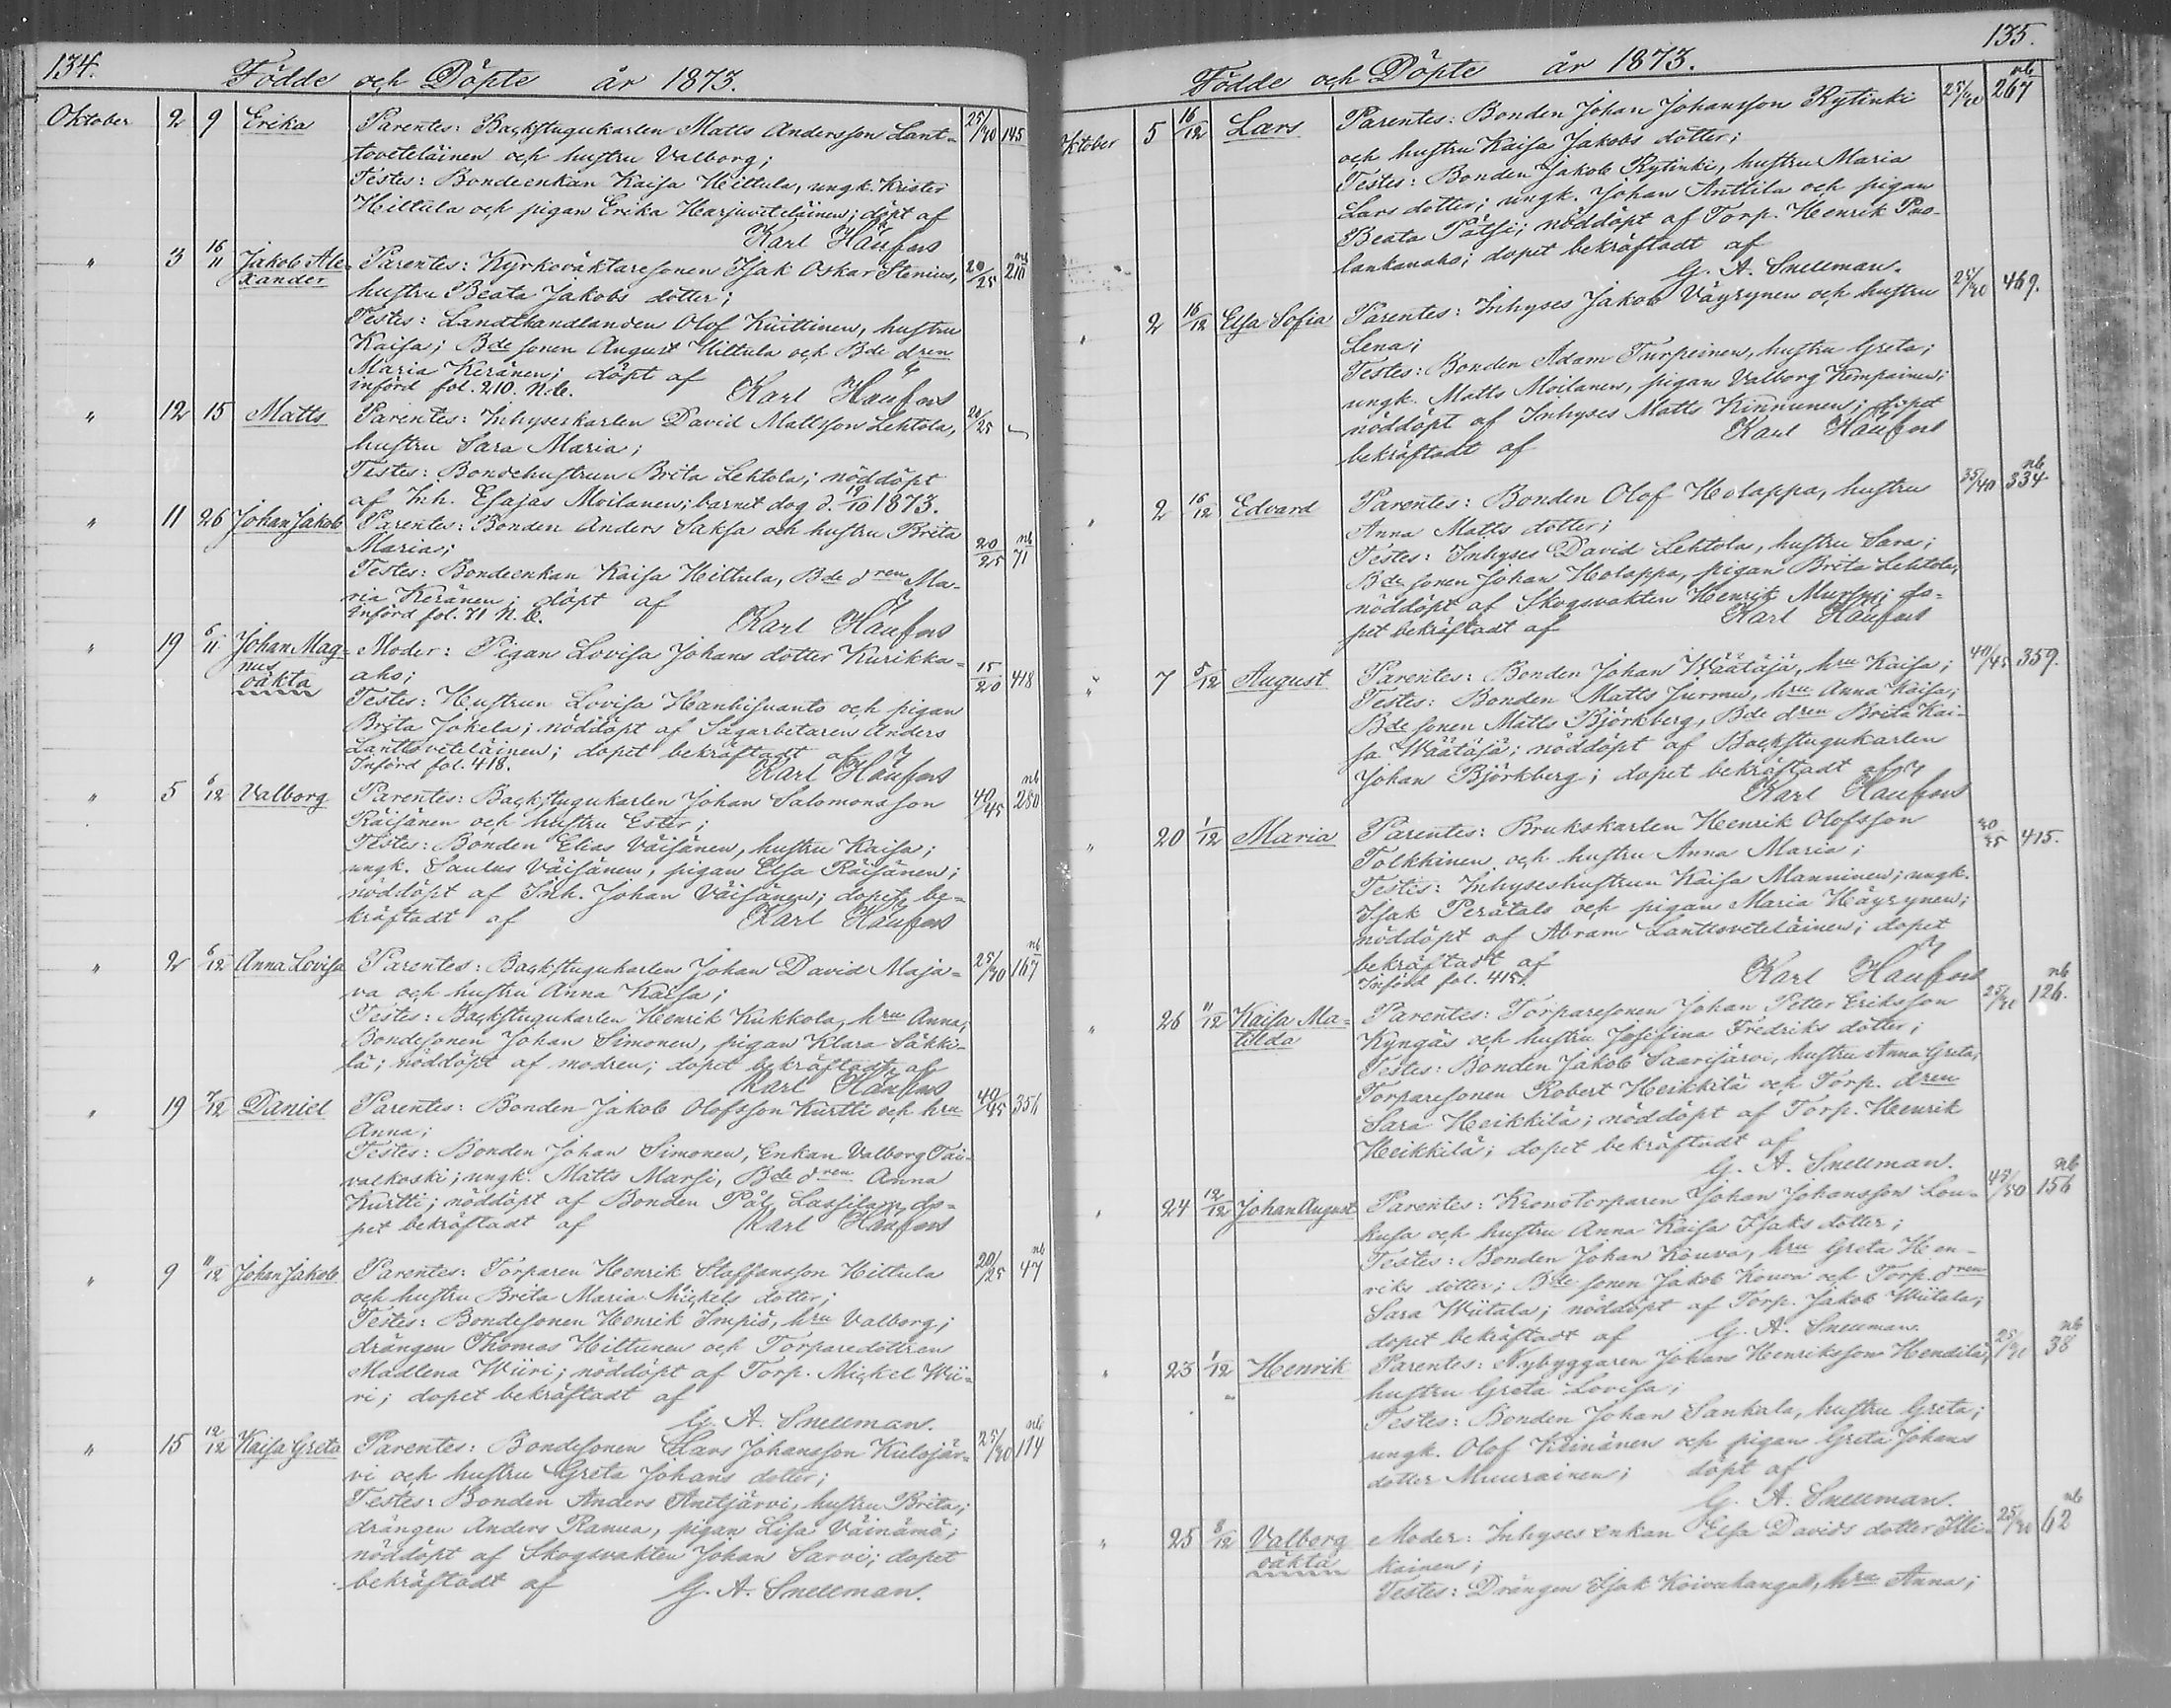 134.
Födde och Döpte år 1873.
Oktober 2 9 Erika Parentes: Backstugukarlen Matts Andersson Lant- 25/30 145
toveteläinen och hustru Valborg;
Testes: Bondeenkan Kaisa Hiltula, ungk. Krister
Hiltula och pigan Erika Harjuveteläinen; döpt af
Karl Häufors
" 3 16/11 Jakob Ale- Parentes: Kyrkováktaresonen Isak Oskar Stenius, 20/25 nb 210
xander hustru Beata Jakobs dotter;
Testes: Landthandlanden Olof Kuittinen, hustru
Kaisa; Bde sonen August Hiltula och Bde dren
Maria Keränen; döpt af
införd fol. 210. N.b. Karl Häufors
" 12 15 Matts Parentes: Inhyseskarlen David Mattsson Lehtola, 20/25 -
hustru Sara Maria;
Testes: Bondehustrun Brita Lehtola; nöddöpt
af Inh. Esajas Moilanen; barnet dog d. 19/10 1873.
" 11 26 Johan Jakob Parentes: Bonden Anders Saksa och hustru Brita
Maria; 20/25 nb 71
Testes: Bondeenkan Kaisa Hiltula, Bde dren Ma-
ria Keränen; döpt af
Införd fol. 71 N.b. Karl Häufors
" 19 6/11 Johan Mag- Moder: Pigan Lovisa Johans dotter Kurikka-
nus aho; 15/20 418
oäkta Testes: Hustrun Lovisa Hanhisuanto och pigan
Brita Jokela; nöddöpt af Sågarbetaren Anders
Lanttoveteläinen; dopet bekräftadt af
Införd fol. 418. Karl Häufors
" 5 6/12 Valborg Parentes: Backstugukarlen Johan Salomonsson 40/45 nb 280
Räisänen och hustru Ester;
Testes: Bonden Elias Väisänen, hustru Kaisa;
ungk. Saulus Väisänen, pigan Elsa Räisänen;
nöddöpt af Inh. Johan Väisänen; dopet be-
kräftadt af Karl Häufors
" 2 6/12 Anna Lovisa Parentes: Backstugukarlen Johan David Maja- 25/30 nb 167
va och hustru Anna Kaisa;
Testes: Backstugukarlen Henrik Kukkola, hru Anna;
Bondesonen Johan Simonen, pigan Klara Säkki-
lä; nöddöpt af modren; dopet bekräftadt af
Karl Häufors
" 19 7/12 Daniel Parentes: Bonden Jakob Olofsson Kurtti och hru 40/45 356
Anna;
Testes: Bonden Johan Simonen, Enkan Valborg Tai-
valkoski; ungk. Matts Marsi, Bde dren Anna
Kurtti; nöddöpt af Bonden Påls Lassila; do-
pet bekräftadt af Karl Häufors
" 9 11/12 Johan Jakob Parentes: Torparen Henrik Staffansson Hiltula 20/25 nb 47
och hustru Brita Maria Mickels dotter;
Testes: Bondesonen Henrik Impiö, hru Valborg;
drängen Thomas Hiltunen och Torparedottren
Madlena Wiiri; nöddöpt af Torp. Mickel Wii-
ri; dopet bekräftadt af
G. A. Snellman.
" 15 12/12 Kaisa Greta Parentes: Bondesonen Lars Johansson Kulojär- 25/30 nb 114
vi och hustru Greta Johans dotter;
Testes: Bonden Anders Anetjärvi, hustru Brita;
drängen Anders Ranua, pigan Lisa Väinämö;
nöddöpt af Skogsvakten Johan Sarvi; dopet
bekräftadt af G. A. Snellman.
135.
Födde och Döpte år 1873.
Oktober 5 16/12 Lars Parentes: Bonden Johan Johansson Rytinki 25/30 nb 267
och hustru Kaisa Jakobs dotter;
Testes: Bonden Jakob Rytinki, hustru Maria
Lars dotter; ungk. Johan Anttila och pigan
Beata Pätsi; nöddöpt af Torp. Henrik Puo-
lankanaho; dopet bekräftadt af
G. A. Snellman.
" 2 16/12 Elsa Sofia Parentes: Inhyses Jakob Väyrynen och hustru 25/30 469.
Lena;
Testes: Bonden Adam Turpeinen, hustru Greta;
ungk. Matts Moilanen, pigan Valborg Kempainen;
nöddöpt af Inhyses Matts Kinnunen; dopet
bekräftadt af Karl Häufors
" 2 16/12 Edvard Parentes: Bonden Olof Holappa, hustru 35/40 nb 334
Anna Matts dotter;
Testes: Inhyses David Lehtola, hustru Sara;
Bde sonen Johan Holappa, pigan Brita Lehtola,
nöddöpt af Skogsvakten Henrik Mursu; do-
pet bekräftadt af Karl Häufors
" 7 5/12 August Parentes: Bonden Johan Wäätäjä, hru Kaisa; 40/45 359.
Testes: Bonden Matts Jurmu, hru Anna Kaisa;
Bde sonen Matts Björkberg, Bde dren Brita Kai-
sa Wäätäjä; nöddöpt af Backstugukarlen
Johan Björkberg; dopet bekräftadt af
Karl Häufors
" 20 1/12 Maria Parentes: Brukskarlen Henrik Olofsson 30/35 415.
Tolkkinen och hustru Anna Maria;
Testes: Inhyseshustrun Kaisa Manninen; ungk.
Isak Perätalo och pigan Maria Häyrynen;
nöddöpt af Abram Lanttoveteläinen; dopet
bekräftadt af
Införd fol. 415. Karl Häufors
" 26 11/12 Kaisa Ma- Parentes: Torparesonen Johan Petter Eriksson 25/30 nb 126.
tilda Kyngäs och hustru Josefina Fredriks dotter;
Testes: Bonden Jakob Saarijärvi, hustru Anna Greta;
Torparesonen Robert Heikkilä och Torp. dren
Sara Heikkilä; nöddöpt af Torp. Henrik
Heikkilä; dopet bekräftadt af
G. A. Snellman.
" 24 12/12 Johan August Parentes: Kronotorparen Johan Johansson Lou- 45/50 nb 156
kusa och hustru Anna Kaisa Isaks dotter;
Testes: Bonden Johan Kouva, hru Greta Hen-
riks dotter; Bde sonen Jakob Kouva och Torp. dren
Sara Wiitala; nöddöpt af Torp. Jakob Wiitala;
dopet bekräftadt af G. A. Snellman.
" 23 1/12 Henrik Parentes: Nybyggaren Johan Henriksson Hendilä, 25/30 nb 38
" hustru Greta Lovisa;
Testes: Bonden Johan Sankala, hustru Greta;
ungk. Olof Keinänen och pigan Greta Johans
dotter Muurainen; döpt af
G. A. Snellman.
" 25 8/12 Valborg Moder: Inhyses enkan Elsa Davids dotter Illi- 25/30 nb 62
oäkta kainen;
Testes: Drängen Isak Koivukangas, hru Anna;